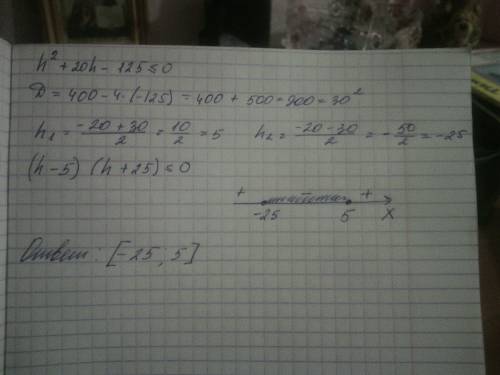 h² + 20h - 125 ≤ 0
D = 400 - 4·(-125) = 400 + 500 = 900 = 30²
h₁ = (-20 + 30)/2 = 10/2 = 5 h₂ = (-20 - 30)/2 = -50/2 = -25
(h - 5) (h + 25) ≤ 0
+ - +
-25 5 x
Ответ: [-25; 5]